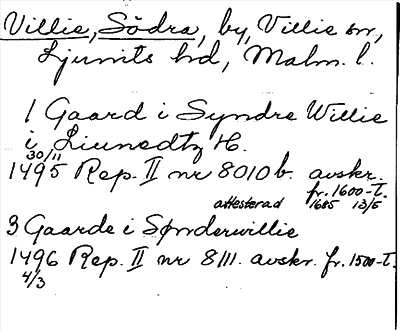 Villie, Södra, by, Villie sn,
Ljunits hd, Malm. l.
1 Gaard i Syndre Willie
i Liunedtz H.
30/11
1495 Rep. II nr 8010 b. avskr.
fr. 1600-t.
attesterad 1685 13/5
3 Gaarde i Sønderwillie
1496 Rep. II nr 8111. avskr. fr. 1500-t.
4/3